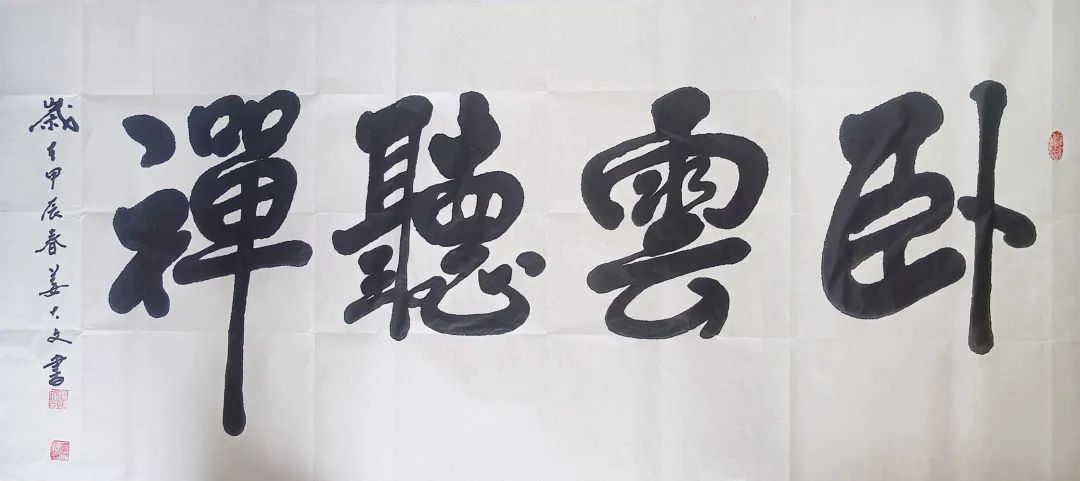 卧雲聽禪
歲在甲辰春姜大文書